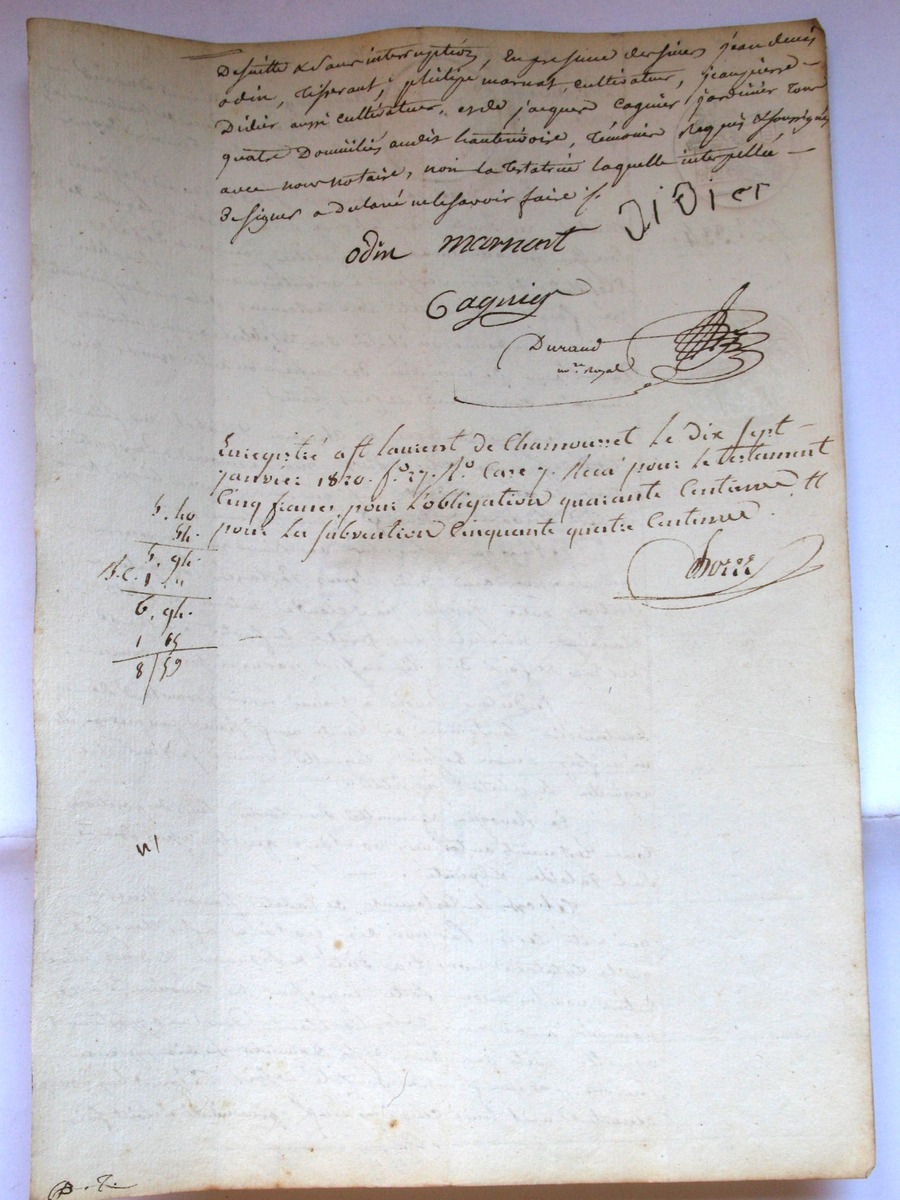 De suitte & sans interruption, En presence des sieurs jean denis
odin, tisserant, philipe marnat, cultivateur, jean pierre
Didier aussi cultivateur, et de jacques Cagnier, jardinier tous
quatre Domiciliés audit hauterivoire, témoins Requis & soussignés
avec nous notaire, non la testatrice laquelle interpellée
De signer a declaré ne le savoir faire /.
odin marnat Didier
Cagnier
Durand
nre royal
Enregistré a St Laurent de Chamousset le dix sept
janvier 1820. fo 27. Ro Case 7. Recu pour le testament
Cinq francs, pour l'obligation quarante Centimes, &
pour la subvention Cinquante quatre Centimes.
5. 40
54.
5. 94.
6. 94.
1 65
8 59